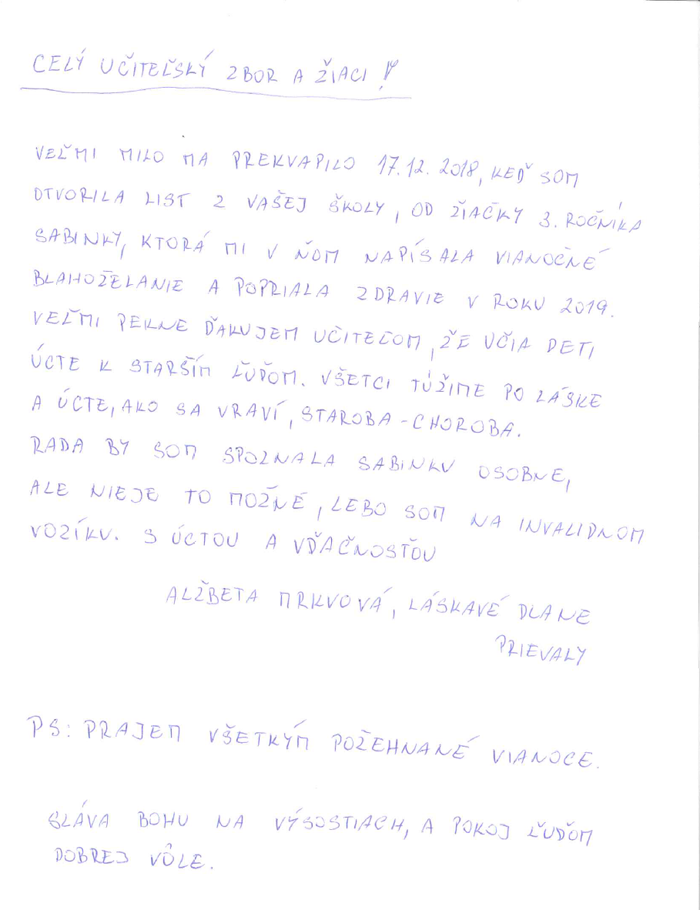 CELÝ UČITEĽSKÝ ZBOR A ŽIACI!
VEĽMI MILO MA PREKVAPILO 17.12. 2018, KEĎ SOM
OTVORILA LIST Z VAŠEJ ŠKOLY, OD ŽIAČKY 3. ROČNÍKA
SABINKY, KTORÁ MI V ŇOM NAPÍSALA VIANOČNÉ
BLAHOŽELANIE A POPRIALA ZDRAVIE V ROKU 2019.
VEĽMI PEKNE ĎAKUJEM UČITEĽOM, ŽE UČIA DETI
ÚCTE K STARŠÍM ĽUĎOM. VŠETCI TÚŽIME PO LÁSKE
A ÚCTE, AKO SA VRAVÍ, STAROBA - CHOROBA.
RADA BY SOM SPOZNALA SABINKU OSOBNE,
ALE NIEJE TO MOŽNÉ, LEBO SOM NA INVALIDNOM
VOZÍKU. S ÚCTOU A VĎAČNOSŤOU
ALŽBETA MRKVOVÁ, LÁSKAVÉ DLANE
PRIEVALY
PS: PRAJEM VŠETKÝM POŽEHNANÉ VIANOCE.
SLÁVA BOHU NA VÝSOSTIACH, A POKOJ ĽUĎOM
DOBREJ VÔLE.